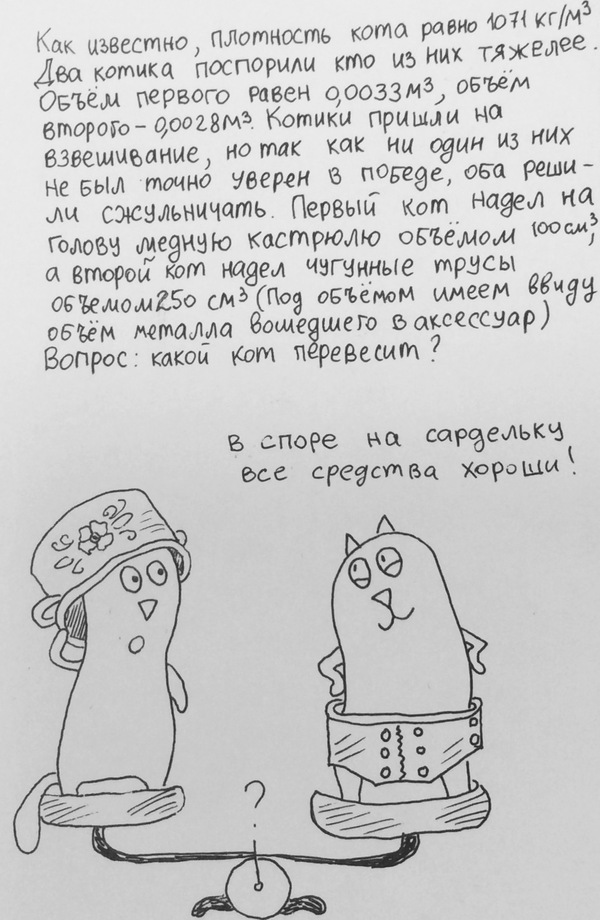 Как известно, плотность кота равно 1071 кг/м³
Два котика поспорили кто из них тяжелее.
Объём первого равен 0,0033м³, объём
второго – 0,0028м³. Котики пришли на
взвешивание, но так как ни один из них
не был точно уверен в победе, оба реши-
ли сжульничать. Первый кот надел на
голову медную кастрюлю объёмом 100см³,
а второй кот надел чугунные трусы
объемом 250 см³ (Под объёмом имеем ввиду
объём металла вошедшего в аксессуар)
Вопрос: какой кот перевесит?
в споре на сардельку
все средства хороши!
?